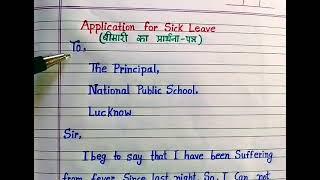 Application for Sick Leave
(बीमारी का प्रार्थना-पत्र)
To,
The Principal,
National Public School.
Lucknow
Sir,
I beg to say that I have been Suffering
from fever Since last night. So, I Can not